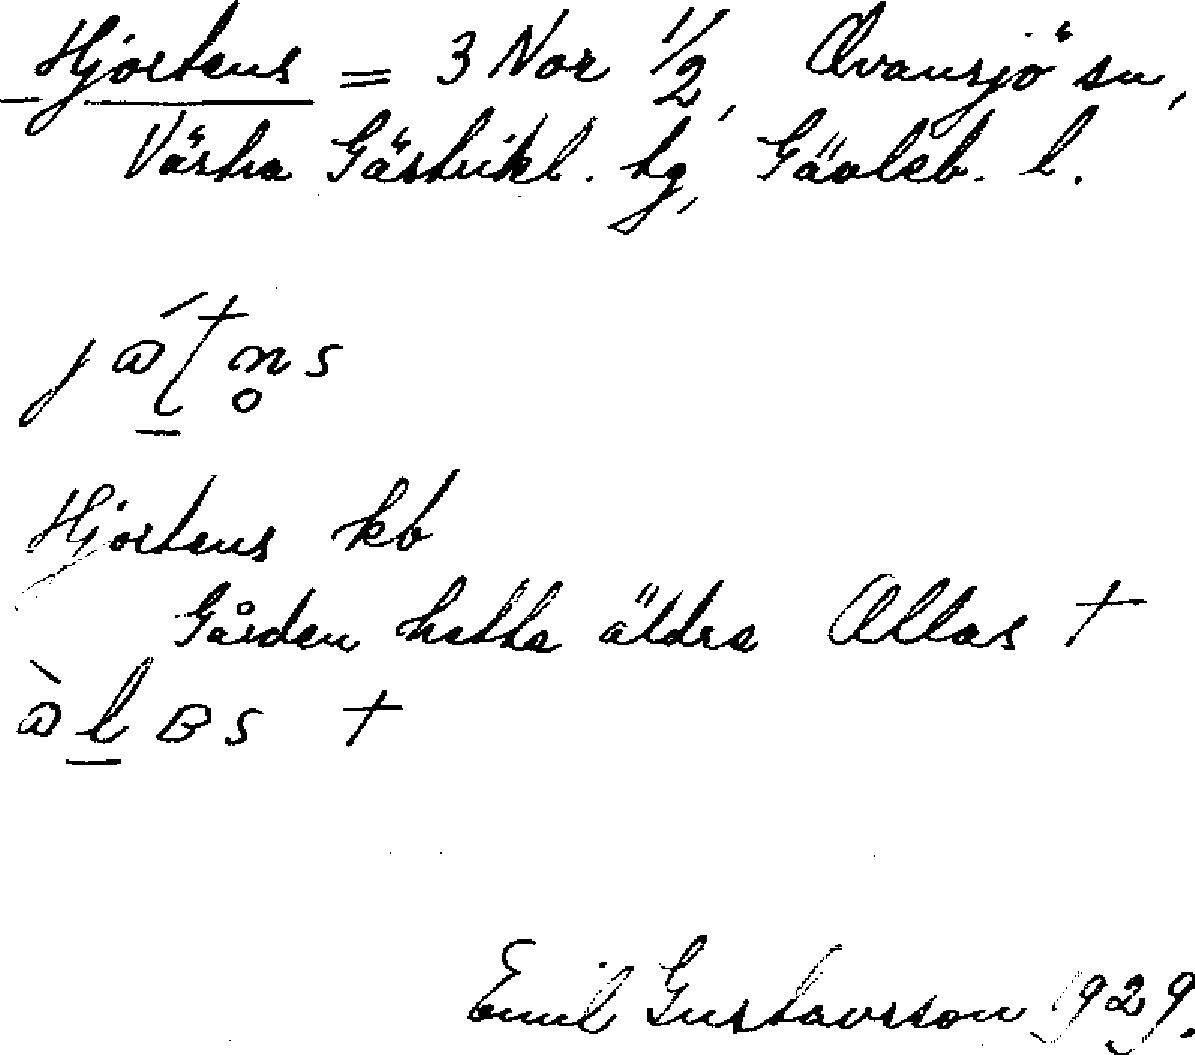 Hjortens = 3 Nor 1/2, Ovansjö sn,
Västra Gästrikl. tg, Gävleb. l.
Hjortens kb
Gården hette äldre Ollas †
Emil Gustavsson 1929.